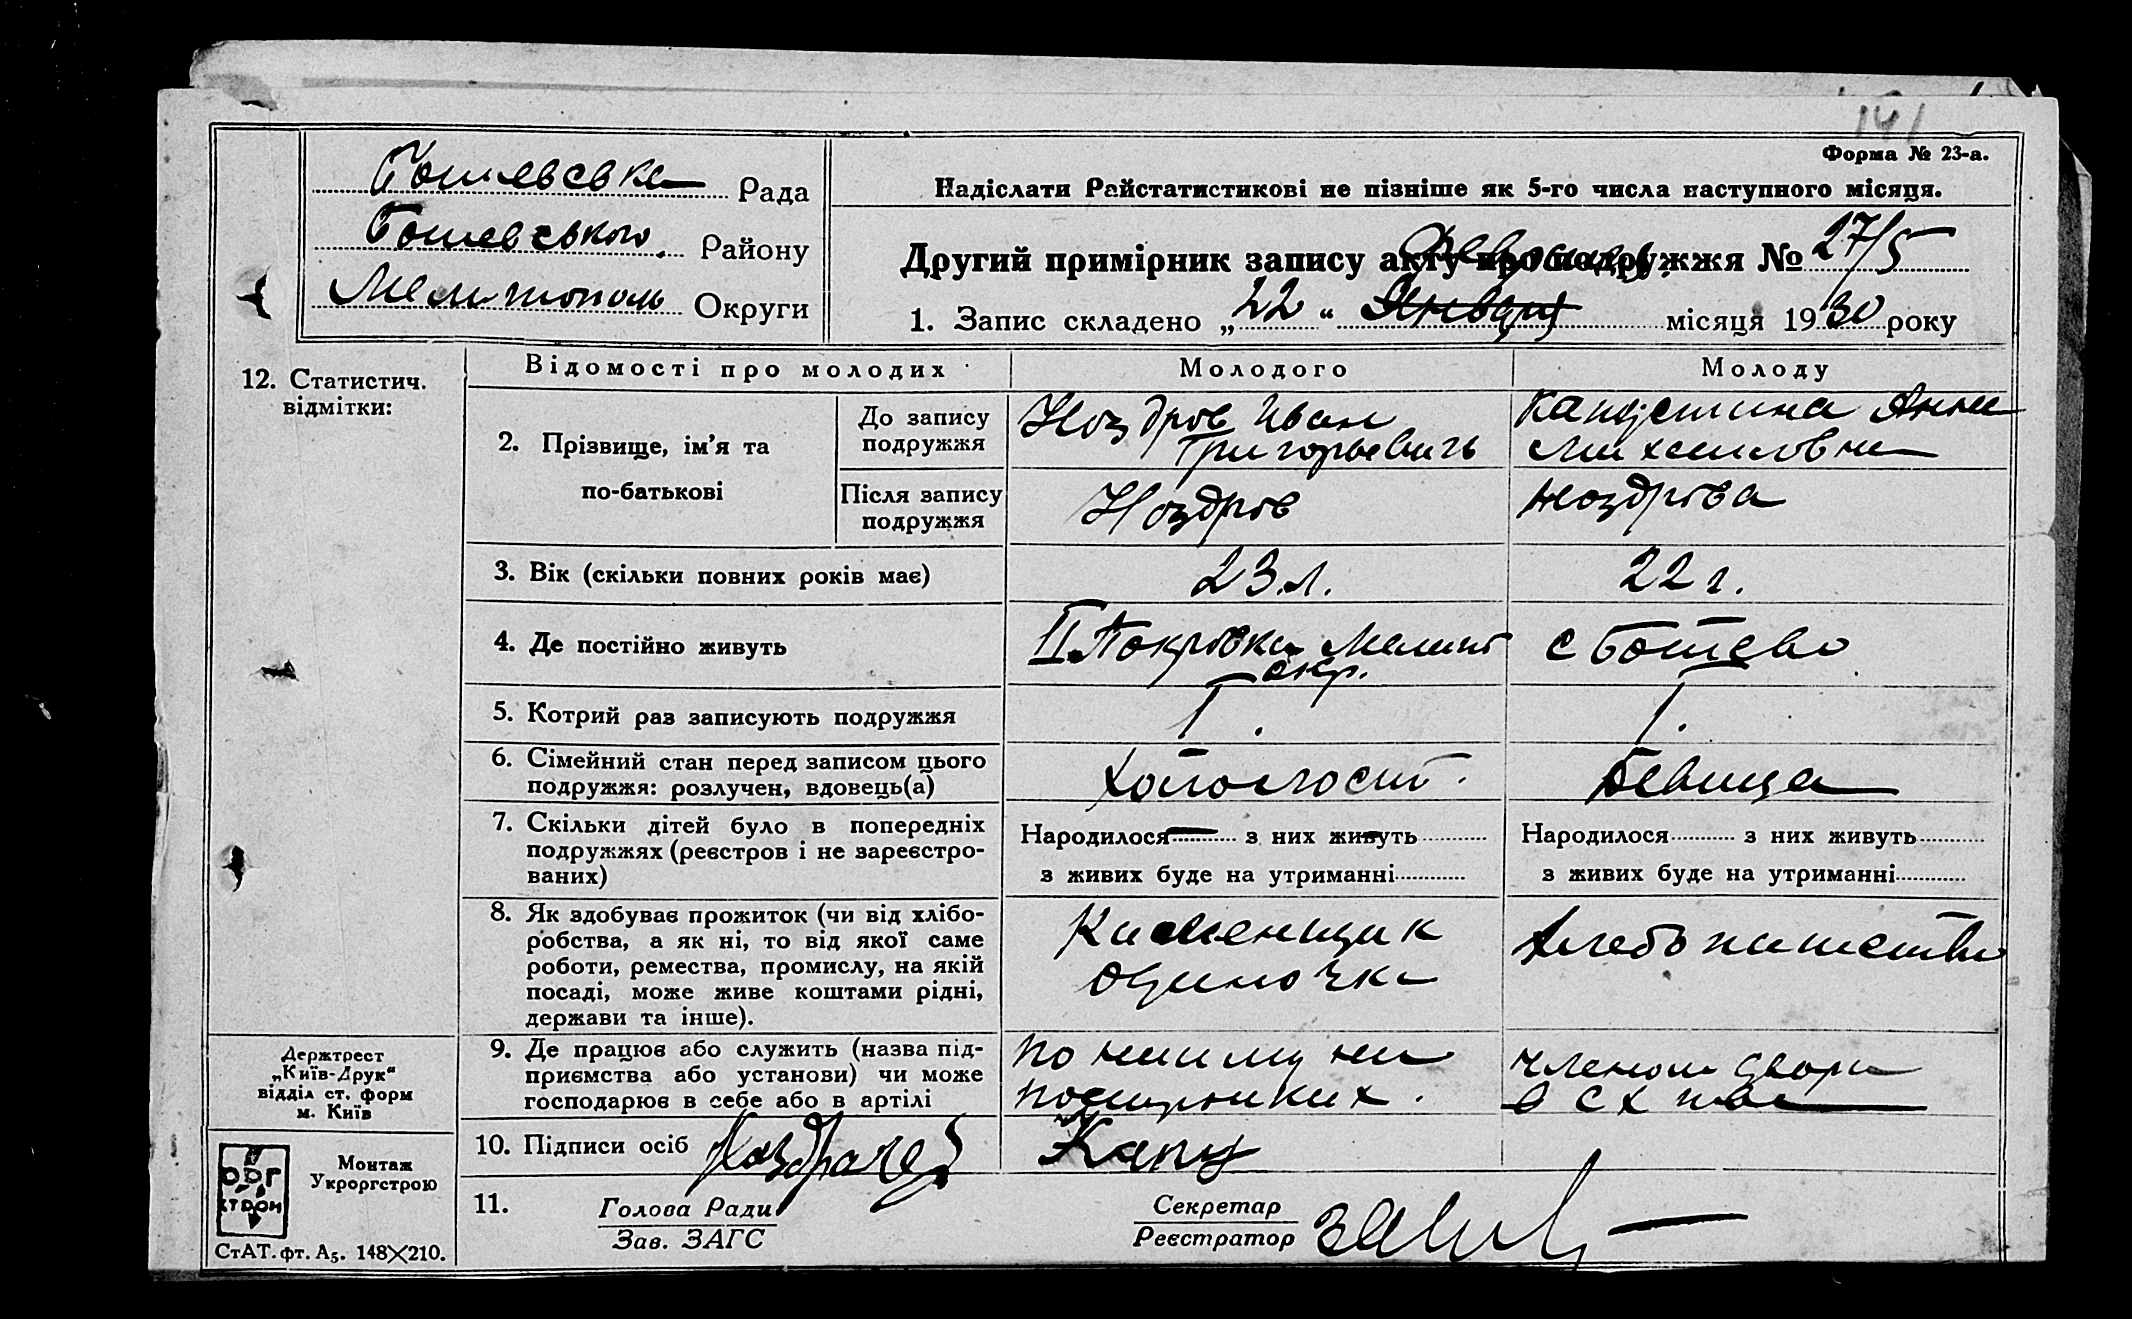 141
Форма № 23-а.
Ботиевська Рада
Ботиевського Району
Мелитополь Округи
Надіслати Райстатистикові не пізніше як 5-го числа наступного місяця.
Другий примірник запису акту про подружжя № 27/5
Февраля
1. Запис складено „22“ Января місяця 1930 року
12. Статистич.
відмітки:
Відомості про молодих
Молодого
Молоду
2. Прізвище, ім’я та
по-батькові
До запису
подружжя
Ноздров Иван
Григорьевичь
Капустина Анна
Михаиловна
Після запису
подружжя
Ноздров
Ноздрова
3. Вік (скільки повних років має)
23 л.
22 г.
4. Де постійно живуть
II Покровка Мелит
окр.
с Ботево
5. Котрий раз записують подружжя
I.
I.
6. Сімейний стан перед записом цього
подружжя: розлучен, вдовець(а)
холост.
Девица
7. Скільки дітей було в попередніх
подружжях (реєстров і не зареєстро-
ваних)
Народилося — з них живуть
з живих буде на утриманні
Народилося з них живуть
з живих буде на утриманні
8. Як здобуває прожиток (чи від хлібо-
робства, а як ні, то від якої саме
роботи, ремества, промислу, на якій
посаді, може живе коштами рідні,
держави та інше).
Каменщик
одиночка
9. Де працює або служить (назва під-
приємства або установи) чи може
господарює в себе або в артілі
по найму на
членом двора
в с х
10. Підписи осіб
Капу
11. Голова Ради
Зав. ЗАГС
Секретар
Реєстратор
Держтрест
„Київ-Друк“
відділ ст. форм
м. Київ
ОРГ
СТРОЙ
Монтаж
Укроргстрою
СтАТ. фт. А5. 148×210.